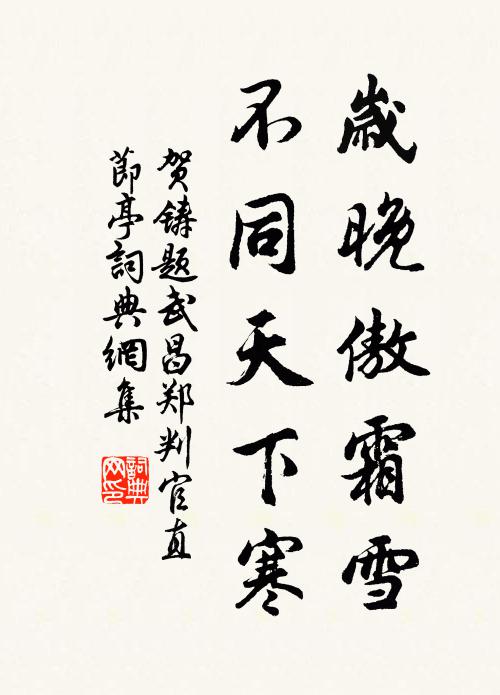 歳晚傲霜雪
不同天下寒
贺鑄题武昌郑判官直
節亭詞典網集
詞典
网印